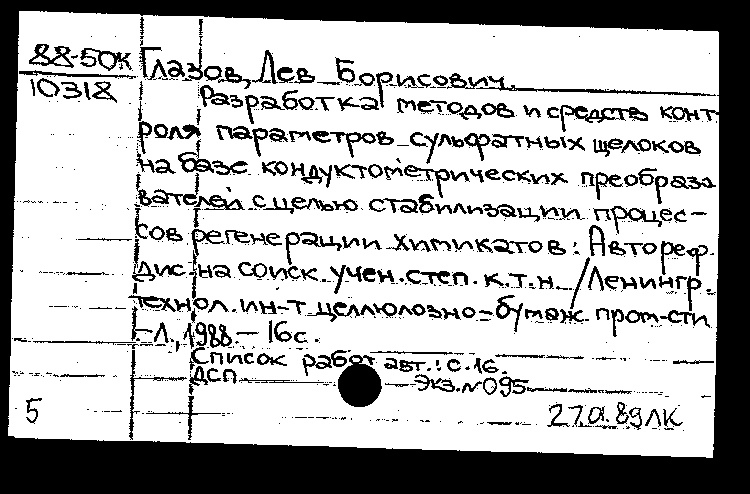 88-50К Глазов, Лев Борисович.
10318 Разработка методов и средств конт-
роля параметров сульфатных щелоков
на базе кондуктометрических преобразо
вателей с целью стабилизации процес-
сов регенерации химикатов: Автореф.
дис. на соиск. учен. степ. к.т.н. / Ленингр.
технол. ин-т целлюлозно-бумаж. пром-сти
-Л., 1988. - 16 с.
Список работ авт.: с. 16.
ДСП Экз. № 095
5 27.01.89 ЛК